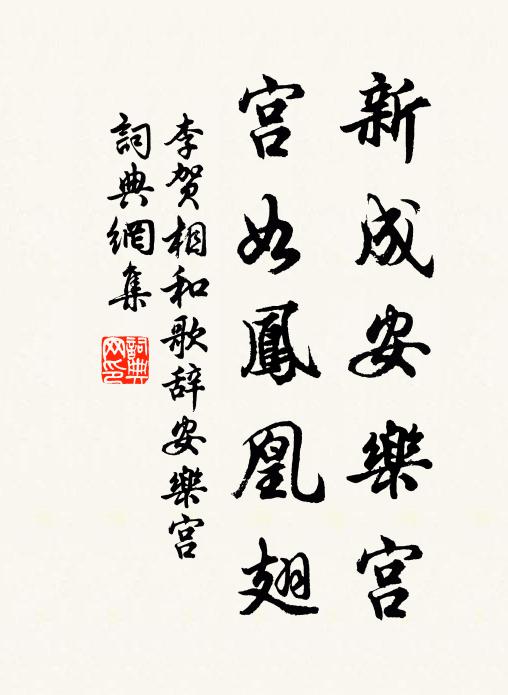 新成安樂宮
宮如鳳凰翅
李賀相和歌辞安樂宮
詞典網集
詞典
网印